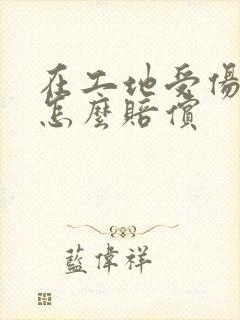 在工地受傷
怎麼賠償
藍偉祥